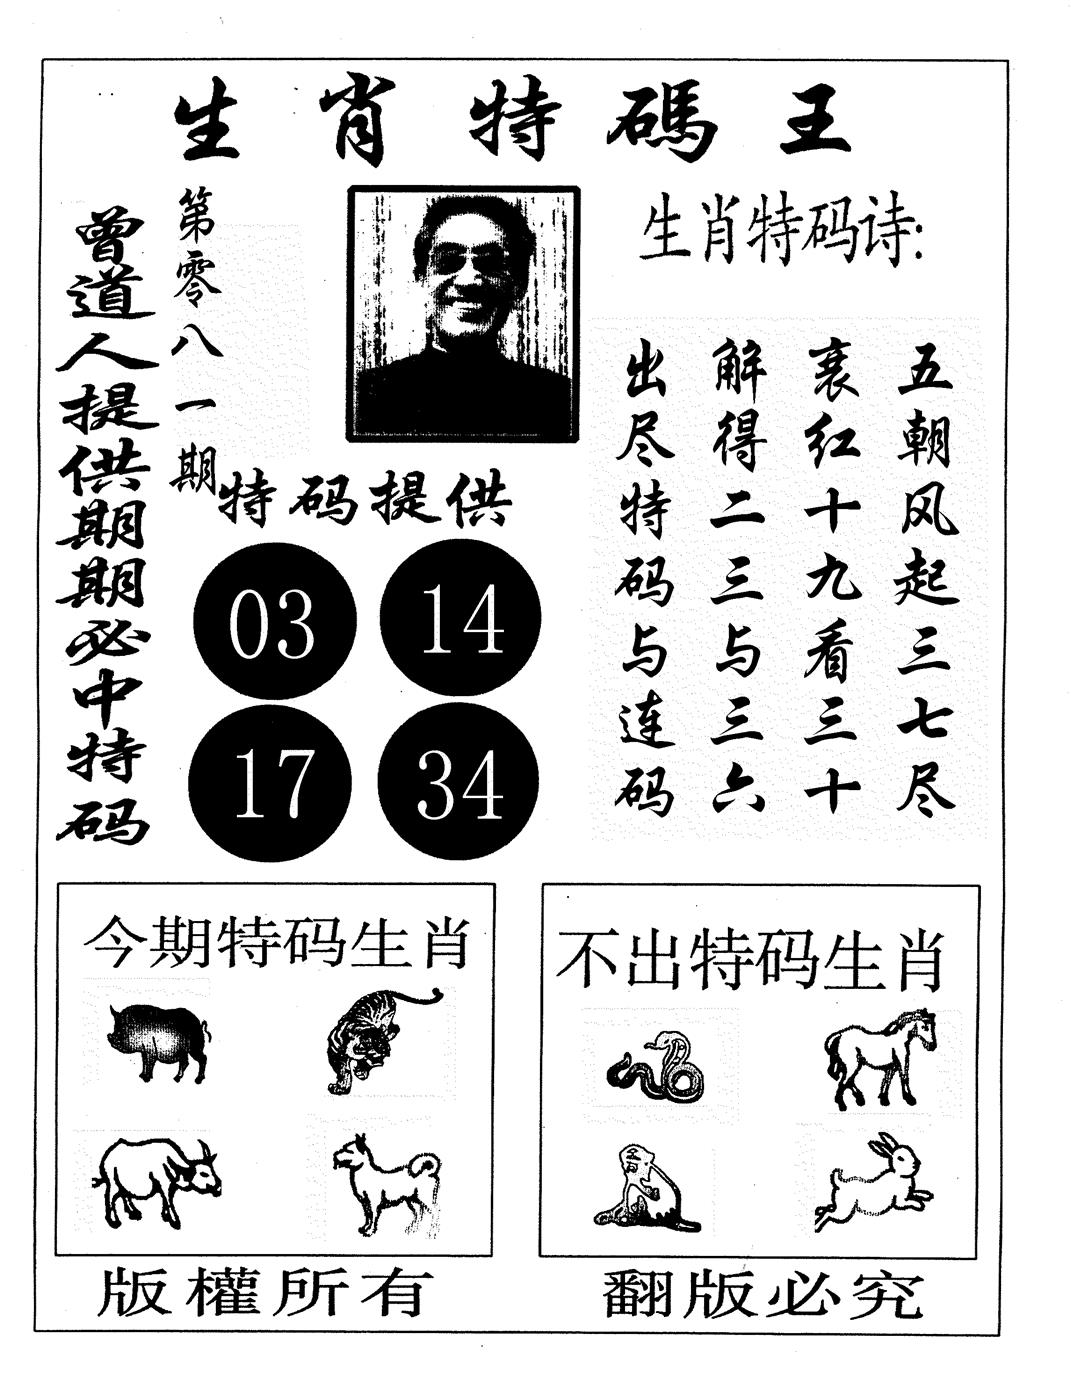 生肖特碼王
曾道人提供期期必中特码
第零八一期
生肖特码诗:
五朝风起三七尽
衰红十九看三十
解得二三与三六
出尽特码与连码
特码提供
03 14
17 34
今期特码生肖
不出特码生肖
版權所有
翻版必究